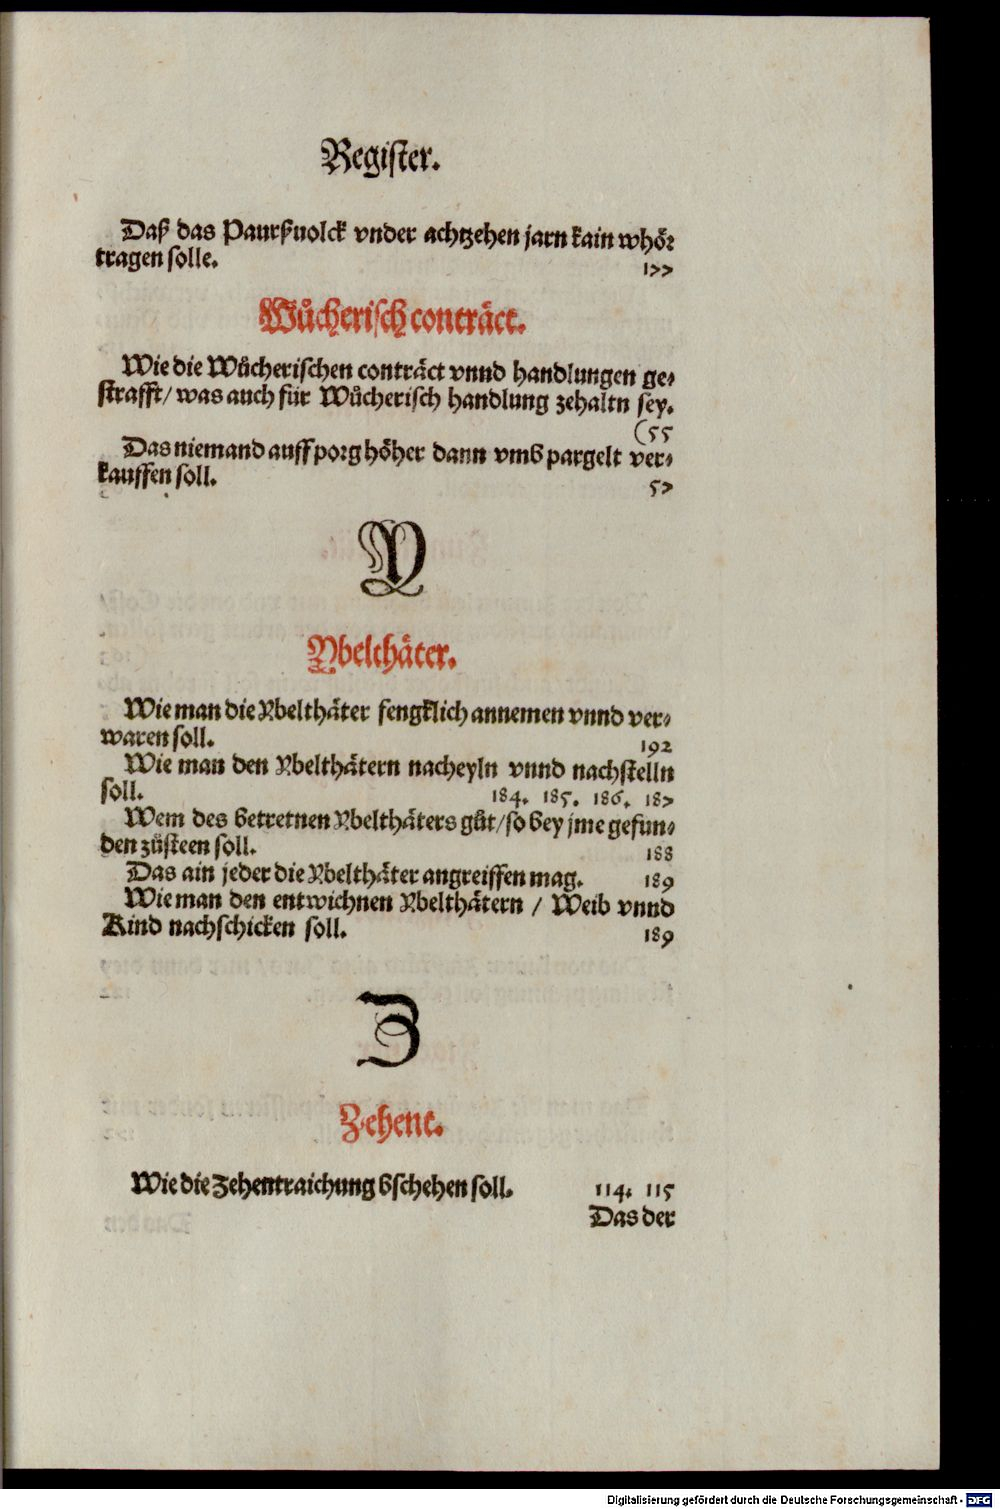 Register.
Daß das Paurßuolck vnder achtzehen jarn kain whör
tragen solle. 177
Wůcherisch conträct.
Wie die Wůcherischen conträct vnnd handlungen ge⸗
strafft/ was auch für Wůcherisch handlung zehaltn sey.
(55
Das niemand auff porg höher dann vmb pargelt ver⸗
kauffen soll. 57
Y
Ybelthäter.
Wie man die Ybelthäter fengklich annemen vnnd ver⸗
waren soll. 192
Wie man den Ybelthätern nacheyln vnnd nachstelln
soll. 184. 185. 186. 187
Wem des betretnen Ybelthäters gůt/ so bey jme gefun⸗
den zůsteen soll. 188
Das ain jeder die Ybelthäter angreiffen mag. 189
Wie man den entwichnen Ybelthätern / Weib vnnd
Kind nachschicken soll. 189
Z
Zehent.
Wie die Zehentraichung bschehen soll. 114. 115
Das der
Digitalisierung gefördert durch die Deutsche Forschungsgemeinschaft - DFG